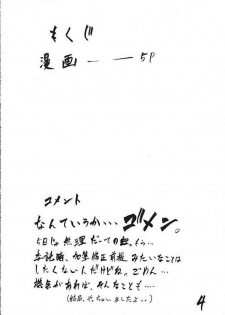 もくじ
漫画 ―― 5P
コメント
なんていうか・・・ゴメン。
5日じゃ無理だっての・・・もう・・・
委託時、加筆修正前提みたいなことは
したくないんだけどね。ごめん・・・
機会があれば、そんなことも・・・
(結局、やっちゃいましたよ・・)
4